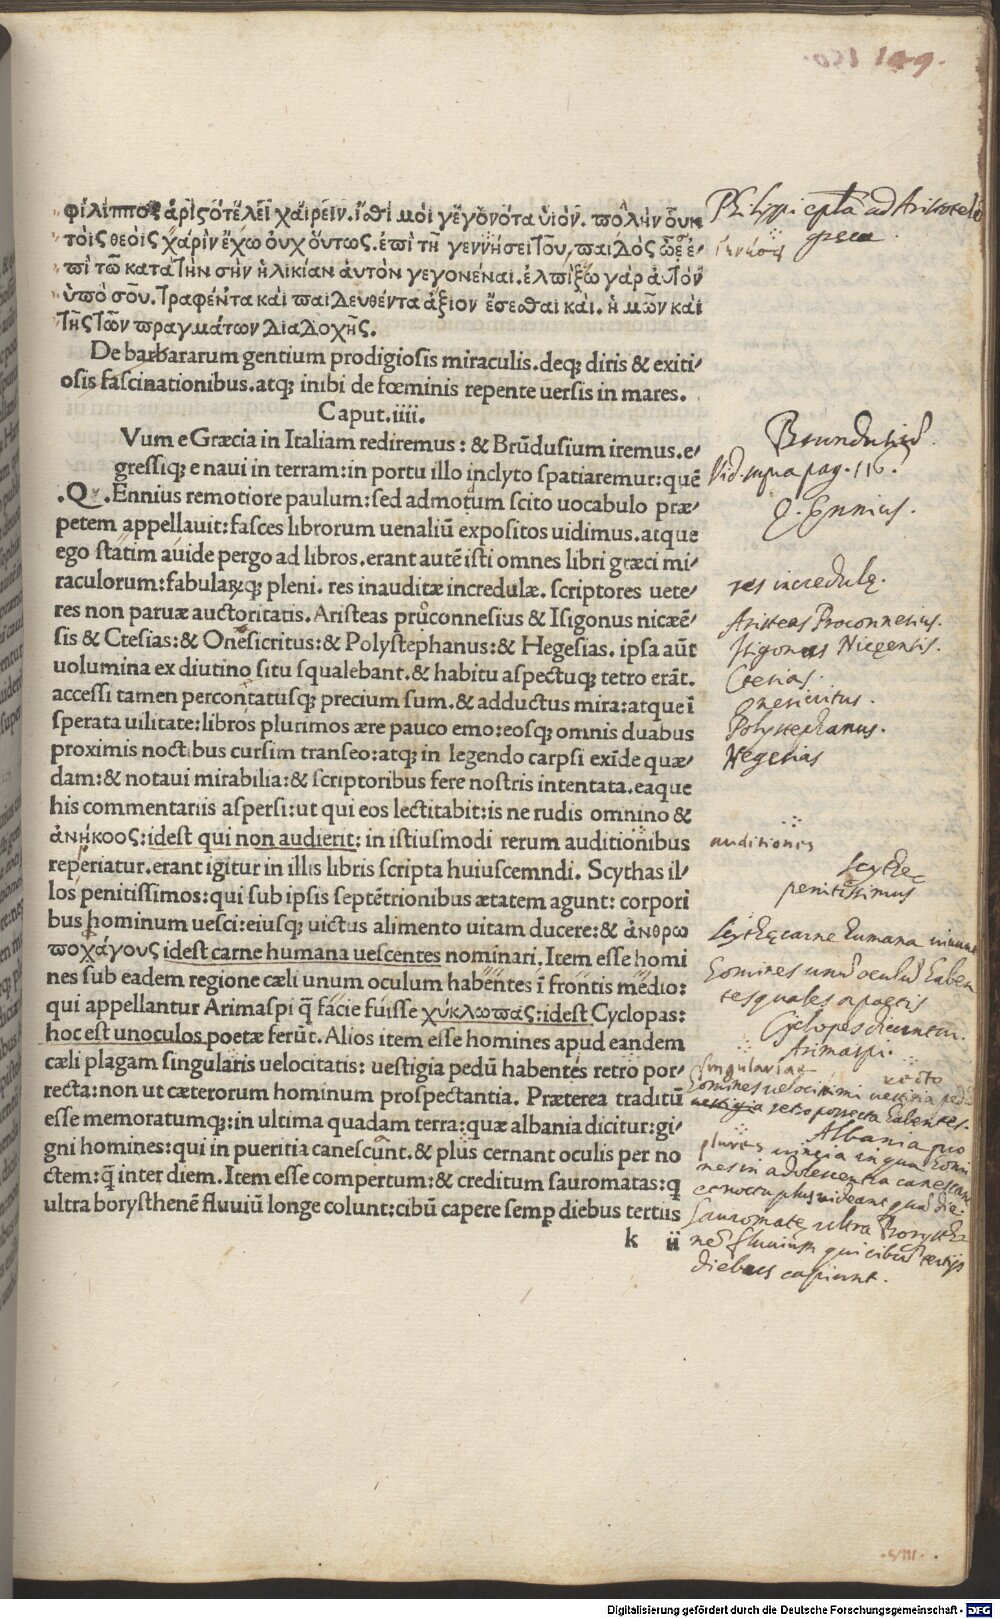 149.
φίλιππος ἀριςοτέλει χαίρειν. ἴσθι μοι γεγονότα ὑιόν. πολὴν οὖν
τοῖς θεοῖς χάριν ἔχω οὐχ ὅυτως. ἐπὶ τῆ γεννήσει τοῦ, παιδὸς ὡς ἐ-
πὶ τῶ κατὰ τὴν σὴν ἡλικίαν ἀυτὸν γεγονέναι. ἐλπίζω γὰρ ἀυτὸν
ὑπὸ σοῦ. τραφέντα καὶ παιδευθέντα ἄξιον ἔσεσθαι καὶ. ἡμῶν καὶ
τῆς τῶν πραγμάτων διαδοχῆς.
De barbararum gentium prodigiosis miraculis. deq; diris & exiti/
osis fascinationibus. atq; inibi de fœminis repente uersis in mares.
Caput. iiii.
Vum e Græcia in Italiam rediremus: & Brūdusium iremus. e/
gressiq; e naui in terram: in portu illo inclyto spatiaremur: quē
.Q. Ennius remotiore paulum: sed admotum scito uocabulo præ/
petem appellauit: fasces librorum uenaliū expositos uidimus. atque
ego statim auide pergo ad libros. erant autē isti omnes libri græci mi/
raculorum: fabularꝝq; pleni. res inauditæ incredulæ. scriptores uete/
res non paruæ auctoritatis. Aristeas pruconnesius & Isigonus nicæē/
sis & Ctesias: & Onesicritus: & Polystephanus: & Hegesias. ipsa aūt
uolumina ex diutino situ squalebant. & habitu aspectuq; tetro erāt.
accessi tamen percontatusq; precium sum. & adductus mira: atque ī
sperata uilitate: libros plurimos ære pauco emo: eosq; omnis duabus
proximis noctibus cursim transeo: atq; in legendo carpsi exīde quæ/
dam: & notaui mirabilia: & scriptoribus fere nostris intentata. eaque
his commentariis aspersi: ut qui eos lectitabit: is ne rudis omnino &
ἀνήκοος: idest qui non audierit: in istiusmodi rerum auditionibus
reperiatur. erant igitur in illis libris scripta huiuscemndi. Scythas il/
los penitissimos: qui sub ipsis septētrionibus ætatem agunt: corpori
bus hominum uesci: eiusq; uictus alimento uitam ducere: & ἀνθρω
ποχάγους idest carne humana uescentes nominari. Item esse homi
nes sub eadem regione cæli unum oculum habentes ī frontis medio:
qui appellantur Arimaspi q̄ facie fuisse χύκλωπας: idest Cyclopas:
hoc est unoculos poetæ ferūt. Alios item esse homines apud eandem
cæli plagam singularis uelocitatis: uestigia pedū habentes retro por/
recta: non ut cæterorum hominum prospectantia. Præterea traditū
esse memoratumq;: in ultima quadam terra: quæ albania dicitur: gi/
gni homines: qui in pueritia canescunt. & plus cernant oculis per no
ctem: q̄ inter diem. Item esse compertum: & creditum sauromatas: q
ultra borysthenē fluuiū longe colunt: cibū capere semp diebus tertiis
k ii
Philippi epla ad Aristotele
greca
Brundusiū.
Vid. supra pag. 116.
Q. Ennius.
res incredulę.
Aristeas Proconnesius.
Isigonus Nicęensis.
Ctesias.
Onesicritus.
Polystephanus.
Hegesias
auditiones
Scythę
penitissimus
Scythę carne humana
homines unū oculū haben
tes quales a poetis
Cyclopes dicuntur.
Arimaspi.
singularitas
homines velocissimi vestigia pedū
retro porrecta habentes.
Albania
in qua homi
nes in adolescentia canescunt
et noctu plus videant quā die.
Sauromatę ultra Borysthe
nē fluuium qui cibū tertijs
diebus capiunt.
Digitalisierung gefördert durch die Deutsche Forschungsgemeinschaft - DFG